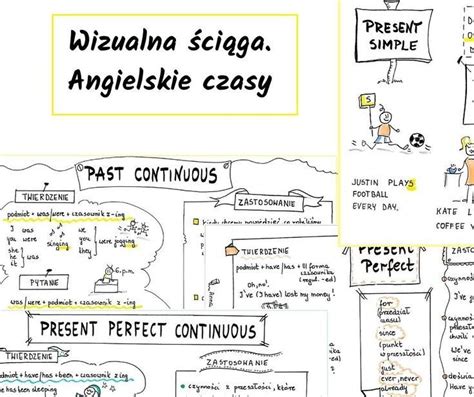 Wizualna ściąga.
Angielskie czasy
PRESENT
SIMPLE
S
JUSTIN PLAYS
FOOTBALL
EVERY DAY.
KATE
COFFEE
PAST CONTINUOUS
TWIERDZENIE
podmiot + was/were + czasownik z -ing
I was
he
she
it was
singing
we
you
they were jogging
6 p.m.
PYTANIE
was/were + podmiot + czasownik z -ing
ZASTOSOWANIE
TWIERDZENIE
podmiot + have/has + III forma
czasownika
(regul. -ed)
Oh, no!
I've (I have) lost my money!
PRESENT
Perfect
for
(przedział
czasu)
since
(punkt
w przeszłości)
just
ever, never
already
PRESENT PERFECT CONTINUOUS
TWIERDZENIE
podmiot + have/has + been + czasownik z -ing
has been sleeping
ZASTOSOWANIE
czynności z przeszłości, które